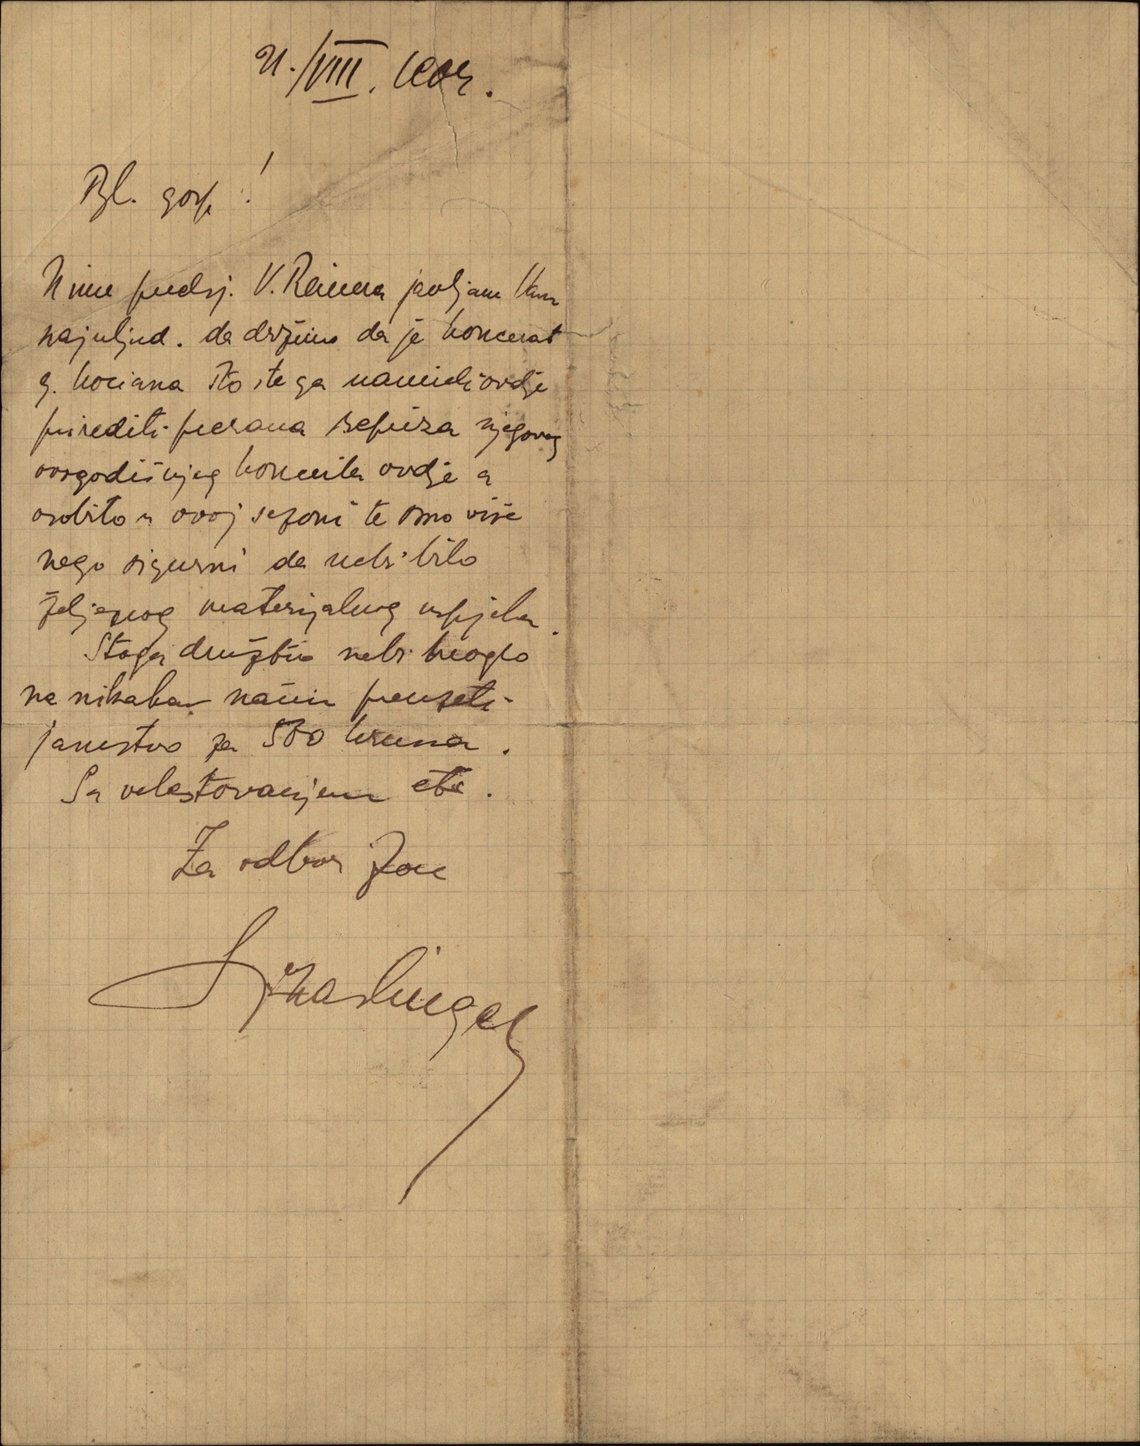 21./VIII. 1902.
Bl. gosp!
U ime predsj. V. Reinera javljam Vam
najuljud. da držimo da je koncerat
g. Kociana što ste ga namislili ovdje
prirediti prerana repriza njegovog
ovogodišnjeg koncerta ovdje a
osobito u ovoj sezoni te smo više
nego sigurni da nebi bilo
željenog materijalnog uspjeha.
Stoga družtvo nebi moglo
na nikakav način preuzeti
jamstvo za 500 kruna.
Sa veleštovanjem etc.
Za odbor